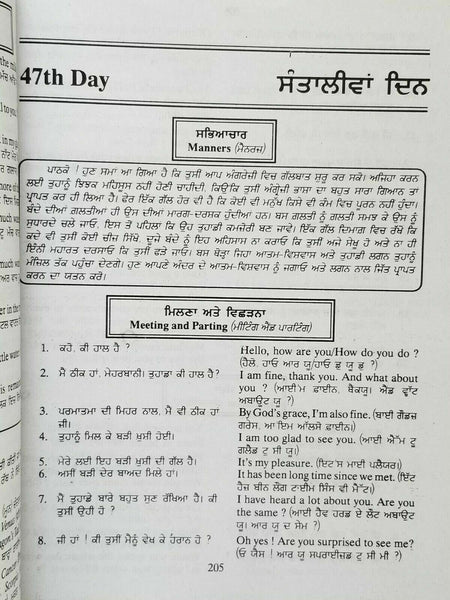 47th Day ਸੰਤਾਲੀਵਾਂ ਦਿਨ
ਸਭਿਆਚਾਰ
Manners (ਮੈਨਰਜ਼)
ਪਾਠਕੋ ! ਹੁਣ ਸਮਾ ਆ ਗਿਆ ਹੈ ਕਿ ਤੁਸੀਂ ਆਪ ਅੰਗਰੇਜ਼ੀ ਵਿਚ ਗੱਲਬਾਤ ਸ਼ੁਰੂ ਕਰ ਸਕੋ। ਅਜਿਹਾ ਕਰਨ
ਲਈ ਤੁਹਾਨੂੰ ਝਿਝਕ ਮਹਿਸੂਸ ਨਹੀਂ ਹੋਣੀ ਚਾਹੀਦੀ, ਕਿਉਂਕਿ ਤੁਸੀਂ ਅੰਗ੍ਰੇਜ਼ੀ ਭਾਸ਼ਾ ਦਾ ਬਹੁਤ ਸਾਰਾ ਗਿਆਨ ਤਾਂ
ਪ੍ਰਾਪਤ ਕਰ ਹੀ ਲਿਆ ਹੈ। ਫੇਰ ਇੱਕ ਗੱਲ ਹੋਰ ਵੀ ਹੈ ਕਿ ਕੋਈ ਵੀ ਮਨੁੱਖ ਕਿਸੇ ਵੀ ਕੰਮ ਵਿਚ ਪੂਰਨ ਨਹੀਂ ਹੁੰਦਾ।
ਬੰਦੇ ਦੀਆਂ ਗਲਤੀਆਂ ਹੀ ਉਸ ਦੀਆਂ ਮਾਰਗ-ਦਰਸ਼ਕ ਹੁੰਦੀਆਂ ਹਨ। ਬਸ ਗਲਤੀ ਨੂੰ ਗਲਤੀ ਸਮਝ ਕੇ ਉਸ ਨੂੰ
ਸੁਧਾਰਦੇ ਚਲੇ ਜਾਓ. ਇਸ ਤੋਂ ਪਹਿਲਾਂ ਕਿ ਉਹ ਤੁਹਾਡੀ ਕਮਜ਼ੋਰੀ ਬਣ ਜਾਵੇ। ਇੱਕ ਗੱਲ ਦਿਮਾਗ ਵਿਚ ਰੱਖੋ ਕਿ
ਕਦੇ ਵੀ ਤੁਸੀਂ ਕੋਈ ਚੀਜ਼ ਸਿੱਖੋ. ਦੂਜੇ ਬੰਦੇ ਨੂੰ ਇਹ ਅਹਿਸਾਸ ਨਾ ਕਰਾਓ ਕਿ ਤੁਸੀਂ ਅਜੇ ਸੇਖੂ ਹੋ ਅਤੇ ਨਾ ਹੀ
ਇੰਨੀ ਮਹਾਰਤ ਦਰਸਾਓ ਕਿ ਤੁਸੀਂ ਫੜੇ ਜਾਓ। ਬਸ ਥੋੜ੍ਹਾ ਜਿਹਾ ਆਤਮ-ਵਿਸ਼ਵਾਸ ਅਤੇ ਤੁਹਾਡੀ ਲਗਨ ਤੁਹਾਨੂੰ
ਮੰਜ਼ਿਲ ਤੱਕ ਪਹੁੰਚਾ ਦੇਣਗੇ। ਹੁਣ ਆਪਣੇ ਅੰਦਰ ਦੇ ਆਤਮ-ਵਿਸ਼ਵਾਸ ਨੂੰ ਜਗਾਓ ਅਤੇ ਲਗਨ ਨਾਲ ਜਿੱਤ ਪ੍ਰਾਪਤ
ਕਰਨ ਦਾ ਯਤਨ ਕਰੋ।
ਮਿਲਣਾ ਅਤੇ ਵਿਛੜਨਾ
Meeting and Parting (ਮੀਟਿੰਗ ਐਂਡ ਪਾਰਟਿੰਗ)
1. ਕਹੋ, ਕੀ ਹਾਲ ਹੈ ? Hello, how are you/How do you do ?
(ਹੈਲੋ, ਹਾਓ ਆਰ ਯੂ/ਹਾਓ ਡੂ ਯੂ ਡੂ ?)
2. ਮੈਂ ਠੀਕ ਹਾਂ, ਮੇਹਰਬਾਨੀ। ਤੁਹਾਡਾ ਕੀ ਹਾਲ ਹੈ? I am fine, thank you. And what about
you ? (ਆਈ'ਮ ਫ਼ਾਈਨ, ਥੈਂਕਯੂ। ਐਂਡ ਵ੍ਹੱਟ
ਅਬਾਉਟ ਯੂ ?)
3. ਪਰਮਾਤਮਾ ਦੀ ਮਿਹਰ ਨਾਲ, ਮੈਂ ਵੀ ਠੀਕ ਹਾਂ By God's grace, I'm also fine. (ਬਾਈ ਗੌਡਜ਼
ਜੀ। ਗਰੇਸ, ਆ'ਇਮ ਆਲਸੋ ਫ਼ਾਈਨ।)
4. ਤੁਹਾਨੂੰ ਮਿਲ ਕੇ ਬੜੀ ਖੁਸ਼ੀ ਹੋਈ। I am too glad to see you. (ਆਈ ਐ'ਮ ਟੂ
ਗਲੈਡ ਟੂ ਸੀ ਯੂ।)
5. ਮੇਰੇ ਲਈ ਇਹ ਬੜੀ ਖੁਸ਼ੀ ਦੀ ਗੱਲ ਹੈ। It's my pleasure. (ਇਟ'ਸ ਮਾਈ ਪਲੈਯਰ।)
6. ਅਸੀਂ ਬੜੀ ਦੇਰ ਬਾਅਦ ਮਿਲੇ ਹਾਂ। It has been long time since we met. (ਇੱਟ
ਹੈਜ਼ ਬੀਨ ਲੌਂਗ ਟਾਈਮ ਸਿੰਸ ਵੀ ਮੈੱਟ।)
7. ਮੈਂ ਤੁਹਾਡੇ ਬਾਰੇ ਬਹੁਤ ਸੁਣ ਰੱਖਿਆ ਹੈ। ਕੀ I have heard a lot about you. Are you
ਤੁਸੀਂ ਉਹੀ ਹੋ ? the same ? (ਆਈ ਹੈਵ ਹਰਡ ਏ ਲੌਟ ਅਬਾਉਟ
ਯੂ। ਆਰ ਯੂ ਦ ਸੇਮ ?)
8. ਜੀ ਹਾਂ ! ਕੀ ਤੁਸੀਂ ਮੈਨੂੰ ਵੇਖ ਕੇ ਹੈਰਾਨ ਹੋ ? Oh yes ! Are you surprised to see me ?
(ਓ ਯੈਸ ! ਆਰ ਯੂ ਸਪਰਾਈਜ਼ਡ ਟੂ ਸੀ ਮੀ ?)
205